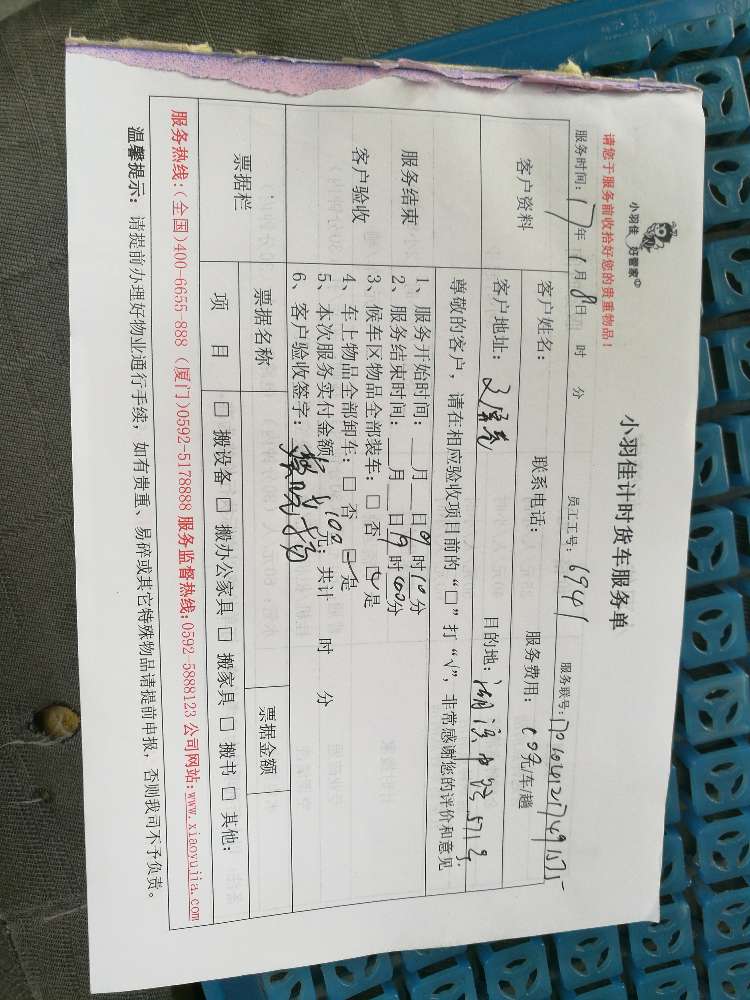 小羽佳 好管家
请您于服务前收拾好您的贵重物品！
小羽佳计时货车服务单
服务时间：17年1月8日 时 分 员工工号：6941 服务联号：
客户资料
客户姓名： 联系电话： 服务费用： 元/车/趟
客户地址： 目的地：
尊敬的客户，请在相应验收项目前的“□”打“√”，非常感谢您的评价和意见
服务结束
客户验收
1、服务开始时间：__月__日9时10分
2、服务结束时间：__月__日9时分
3、候车区物品全部装车：□ 否 □ 是
4、车上物品全部卸车：□ 否 □ 是
5、本次服务实付金额：100元；共计 时 分
6、客户验收签字：
票据栏
票据名称 票据金额
项 目 □ 搬设备 □ 搬办公家具 □ 搬家具 □ 搬书 □ 其他：
服务热线：(全国)400-6655-888 (厦门)0592-5178888 服务监督热线：0592 5888123 公司网站：www.xiaoyujia.com
温馨提示：请提前办理好物业通行手续，如有贵重、易碎或其它特殊物品请提前申报，否则我司不予负责。